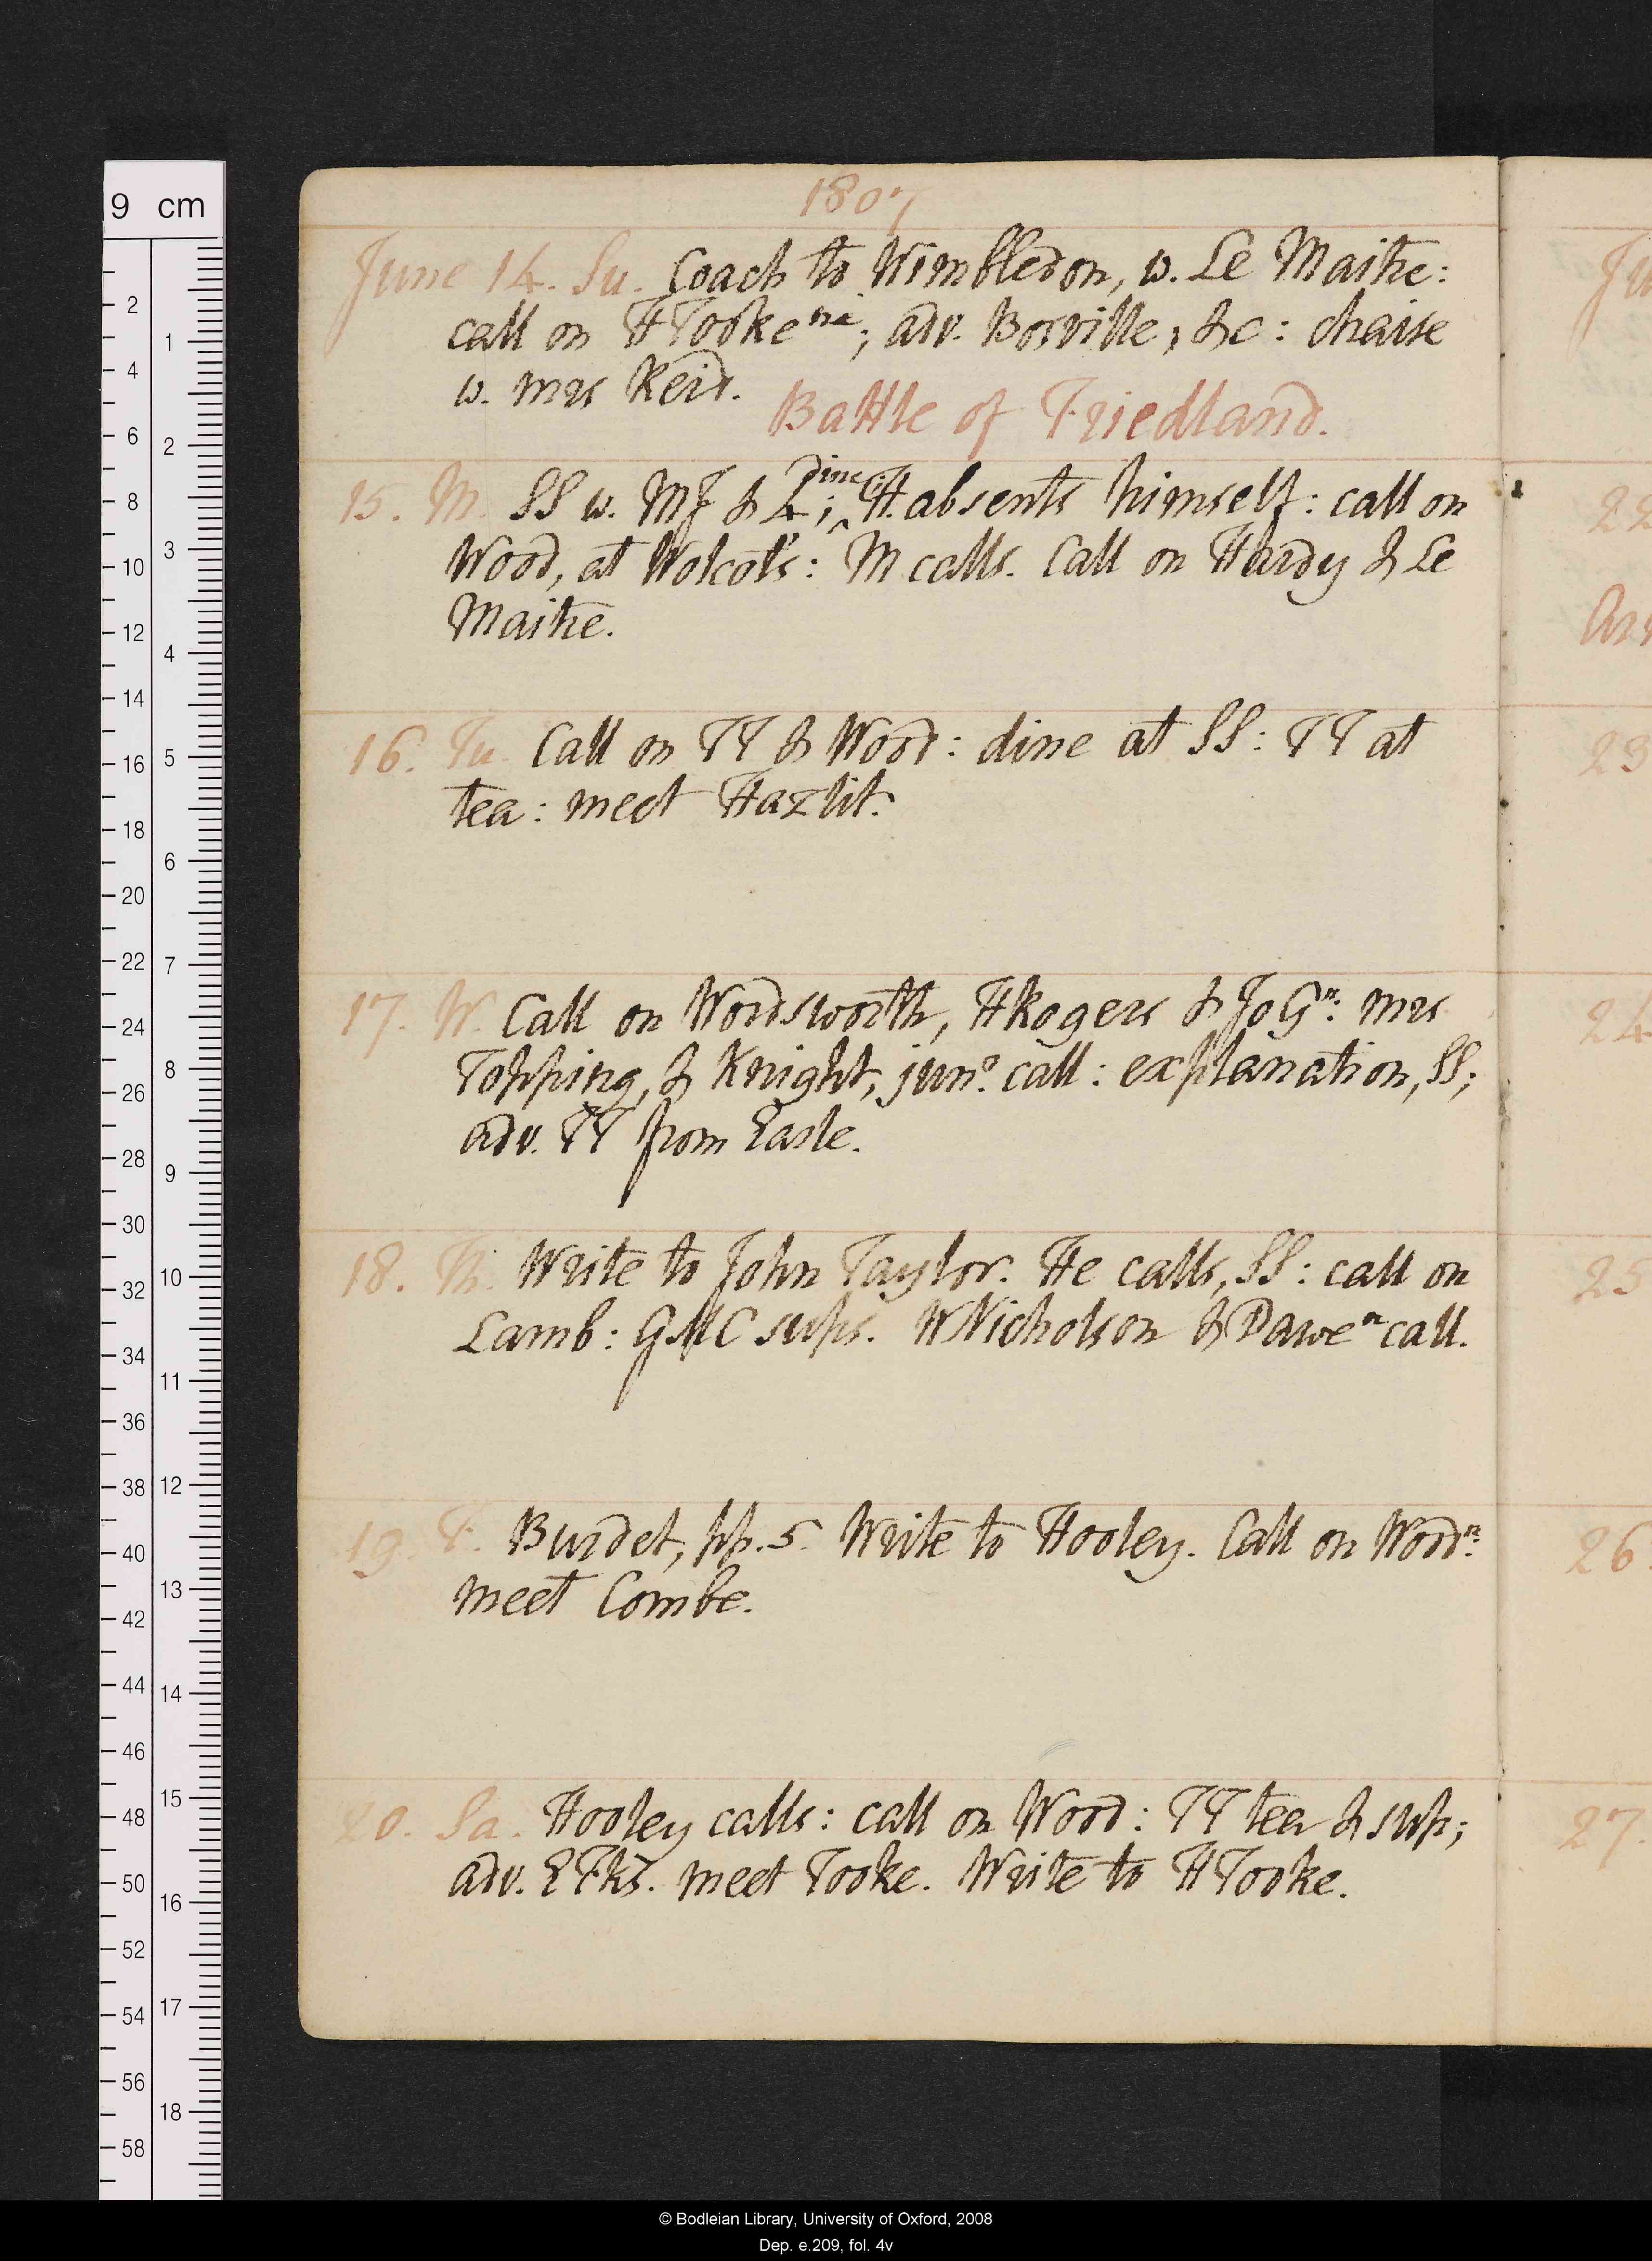 1807
June 14. Su. Coach to Wimbledon, w. Le Maitre:
call on HTooke na; adv. Bosville, &c: chaise
w. mrs Reid.
Battle of Friedland.
15. M. SS w. MJ & L; dine, H. absents himself: call on
Wood, at Wolcot's: M calls. Call on Hardy & Le
Maitre.
16. Tu. Call on TT & Wood: dine at SS: TT at
tea: meet Hazlit.
17. W. Call on Wordsworth, HRogers & JoG n: mrs
Topping, & Knight, junr. call: explanation, SS;
adv. TT from Earle.
18. Th. Write to John Taylor. He calls, SS: call on
Lamb: GMC sups. WNicholson & Dawe n call.
19 F. Burdet, pp. 5. Write to Hooley. Call on Wood n:
meet Combe.
20. Sa. Hooley calls: call on Wood: TT tea & sup;
adv. E Fks. meet Tooke. Write to HTooke.
22
23
24
25
26
27
9 cm
2
4
6
8
10
12
14
16
18
20
22
24
26
28
30
32
34
36
38
40
42
44
46
48
50
52
54
56
58
1
2
3
4
5
6
7
8
9
10
11
12
13
14
15
16
17
18
© Bodleian Library, University of Oxford, 2008
Dep. e.209, fol. 4v